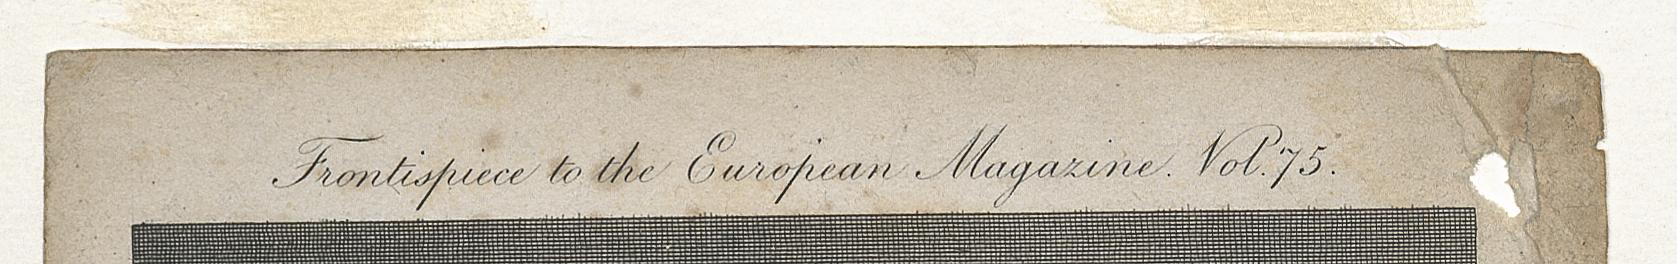 Frontispiece to the European Magazine. Vol. 75.